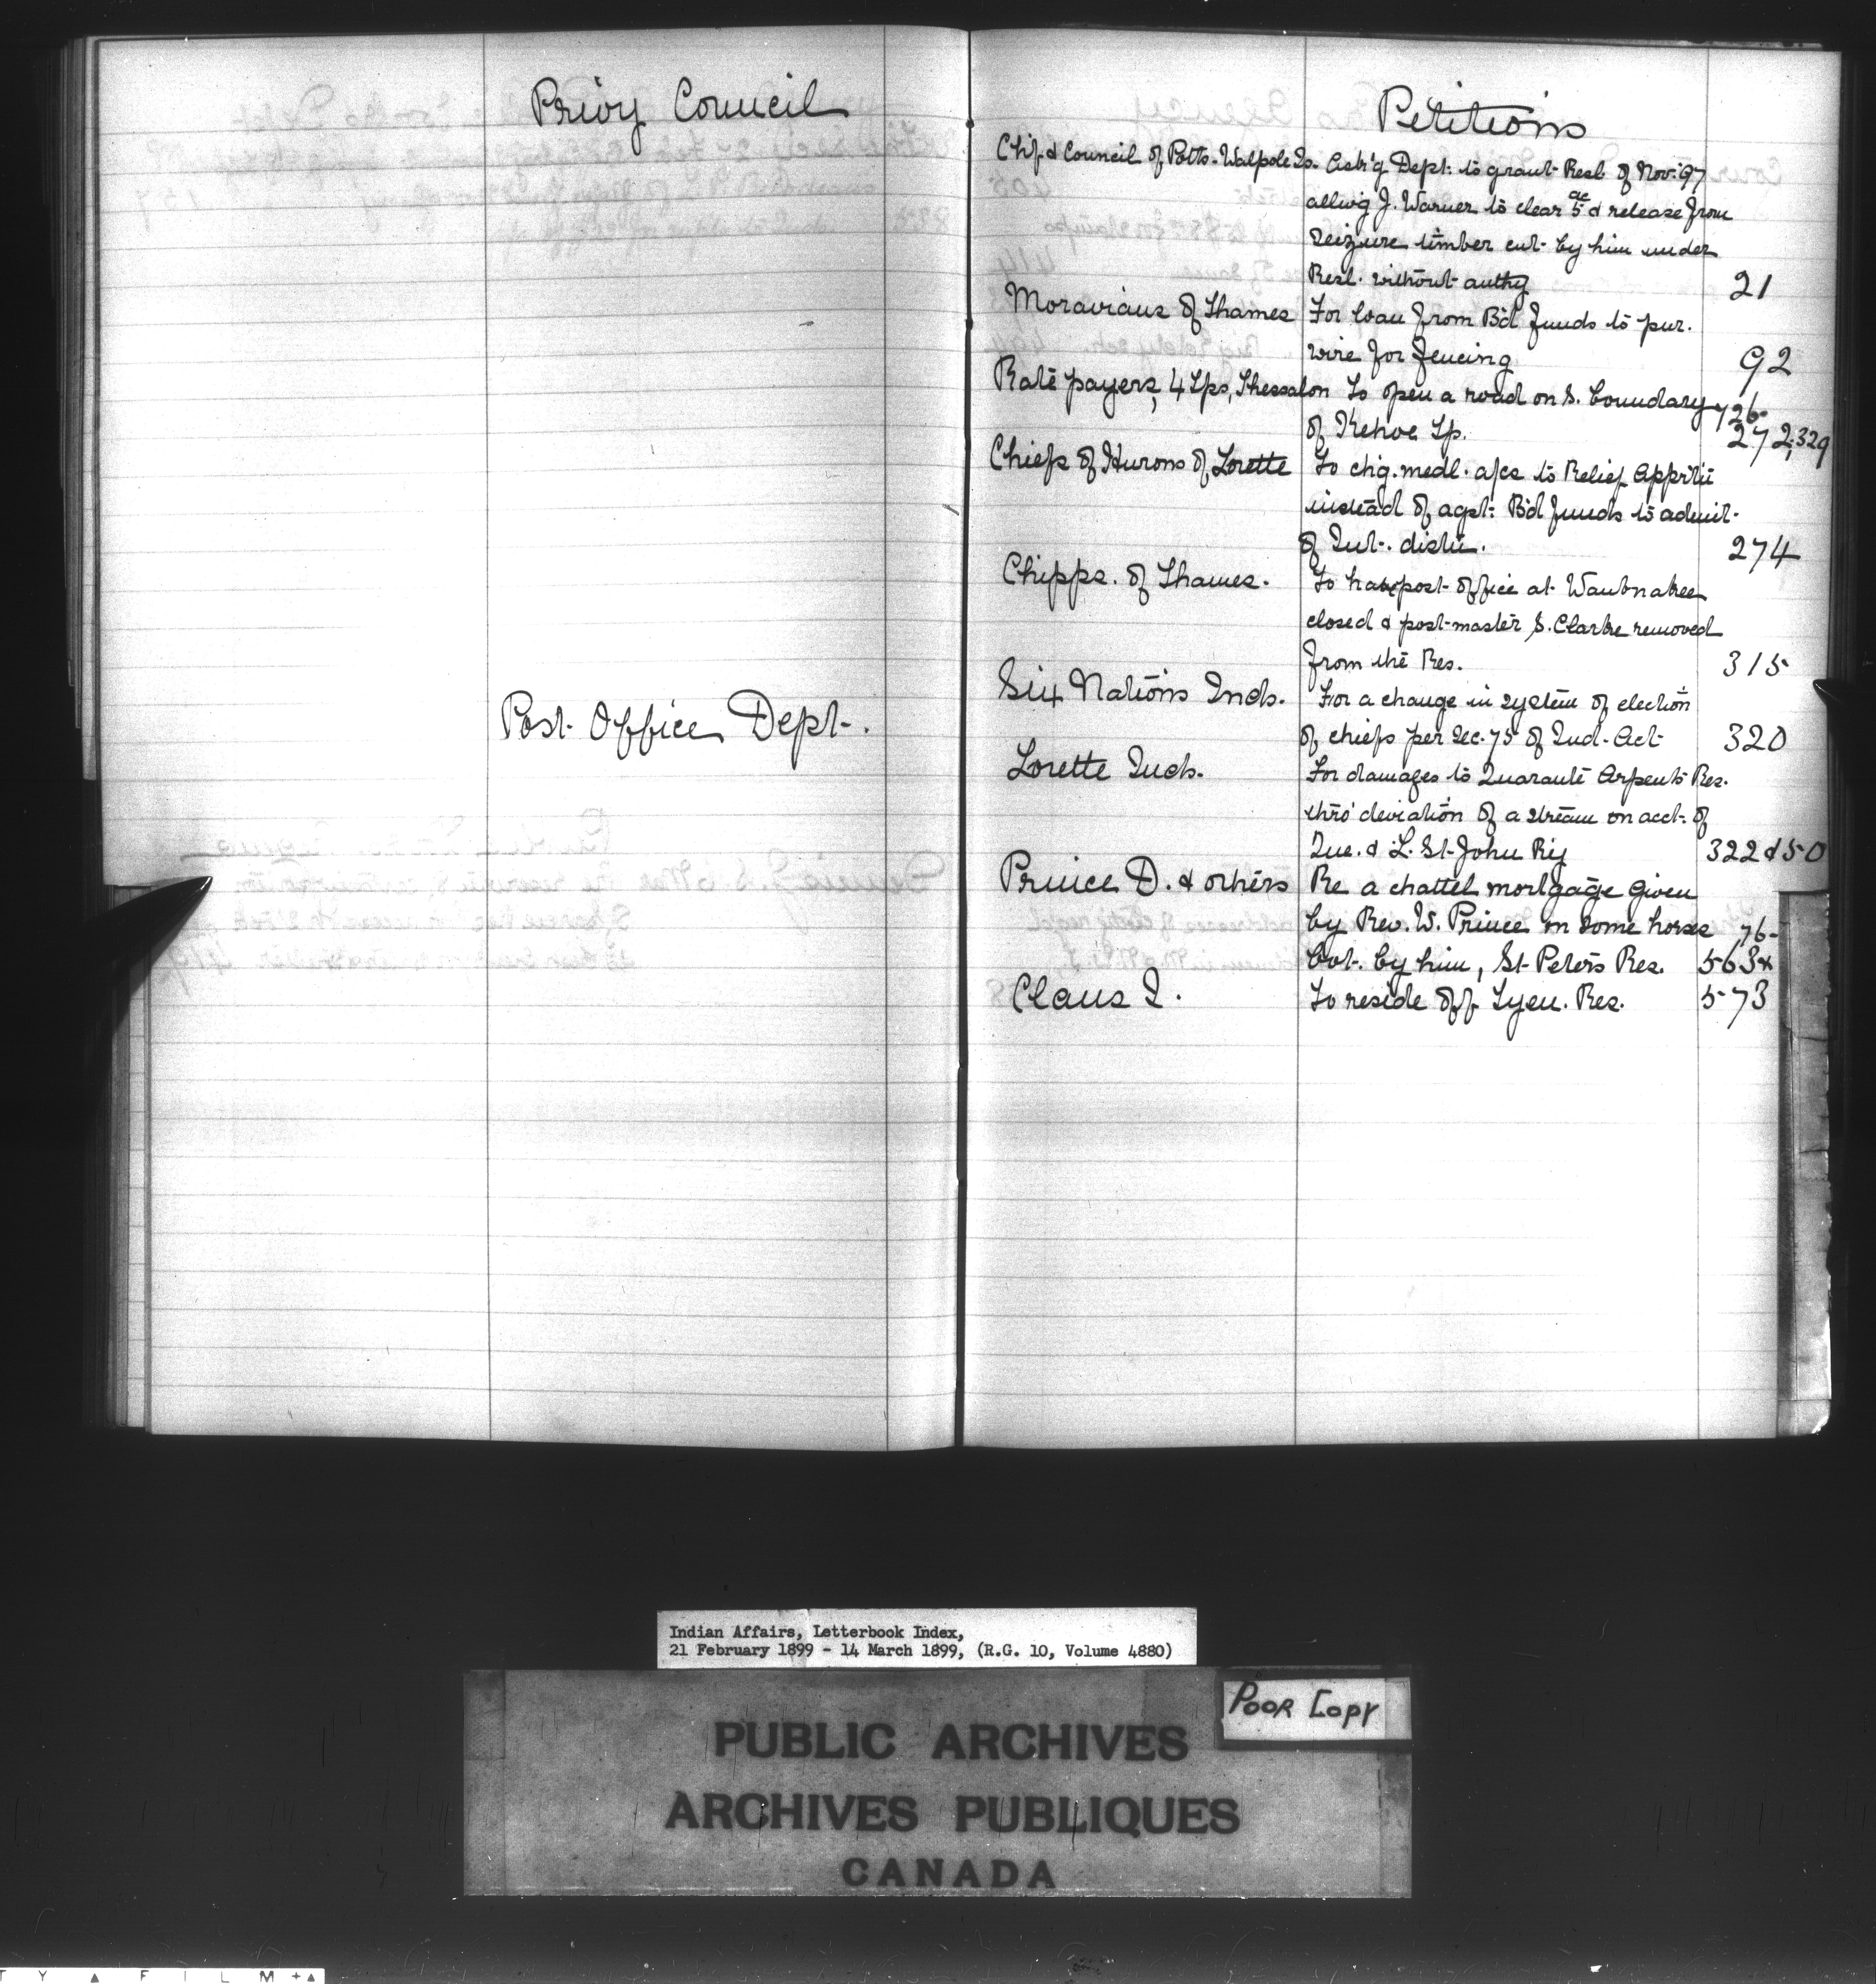 Privy Council
Post Office Dept.
Petitions
Chfs & Council of Potts. Walpole Is. Ask'g Dept. to grant Resl. of Nov. '97
allwig J. Warner to clear 5 ac & release from
seizure timber cut by him under
Resl. without authy 21
Moravians of Thames For loan from B'd funds to pur.
wire for fencing 92
Rate payers, 4 Tps, Thessalon To open a road on S. boundary 726-
of Kehoe Tp. 272,329
Chiefs of Hurons of Lorette To chg. medl. a/cs to Relief Apprtn
instead of agst. B'd funds to admit
of Int. distn. 274
Chipps. of Thames. To have post office at Waubnakee
closed & post-master S. Clarke removed
from the Res. 315
Six Nations Inds. For a change in system of election
of chiefs per Sec. 75 of Ind. Act 320
Lorette Inds. For damages to Quarante Arpents Res.
thro' deviation of a stream on acct. of
Que. & L. St. John Ry 322 & 50
Prince D. & others Re a chattel mortgage given
by Rev. W. Prince on some horses 76-
bot. by him, St. Peters Res. 563x
Claus I. To reside off Tyen. Res. 573
Indian Affairs, Letterbook Index,
21 February 1899 - 14 March 1899, (R.G. 10, Volume 4880)
POOR COPY
PUBLIC ARCHIVES
ARCHIVES PUBLIQUES
CANADA
T Y ▲ F I L M +▲